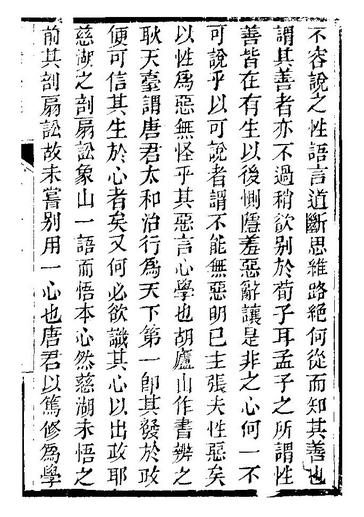 不容說之性語言道斷思維路絕何從而知其善也
謂其善者亦不過稍欲别於荀子耳孟子之所謂性
善皆在有生以後惻隱羞惡辭讓是非之心何一不
可說乎以可說者謂不能無惡明已主張夫性惡矣
以性爲惡無怪乎其惡言心學也胡廬山作書辨之
耿天臺謂唐君太和治行爲天下第一即其發於政
便可信其生於心者矣又何必欲識其心以出政耶
慈湖之剖扇訟象山一語而悟本心然慈湖未悟之
前其剖扇訟故未嘗别用一心也唐君以篤修爲學